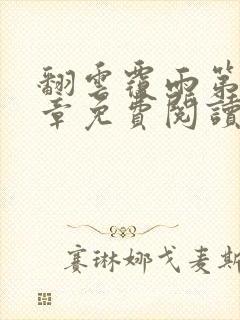 翻雲覆雨第
章免費閱讀
賽琳娜戈麦斯